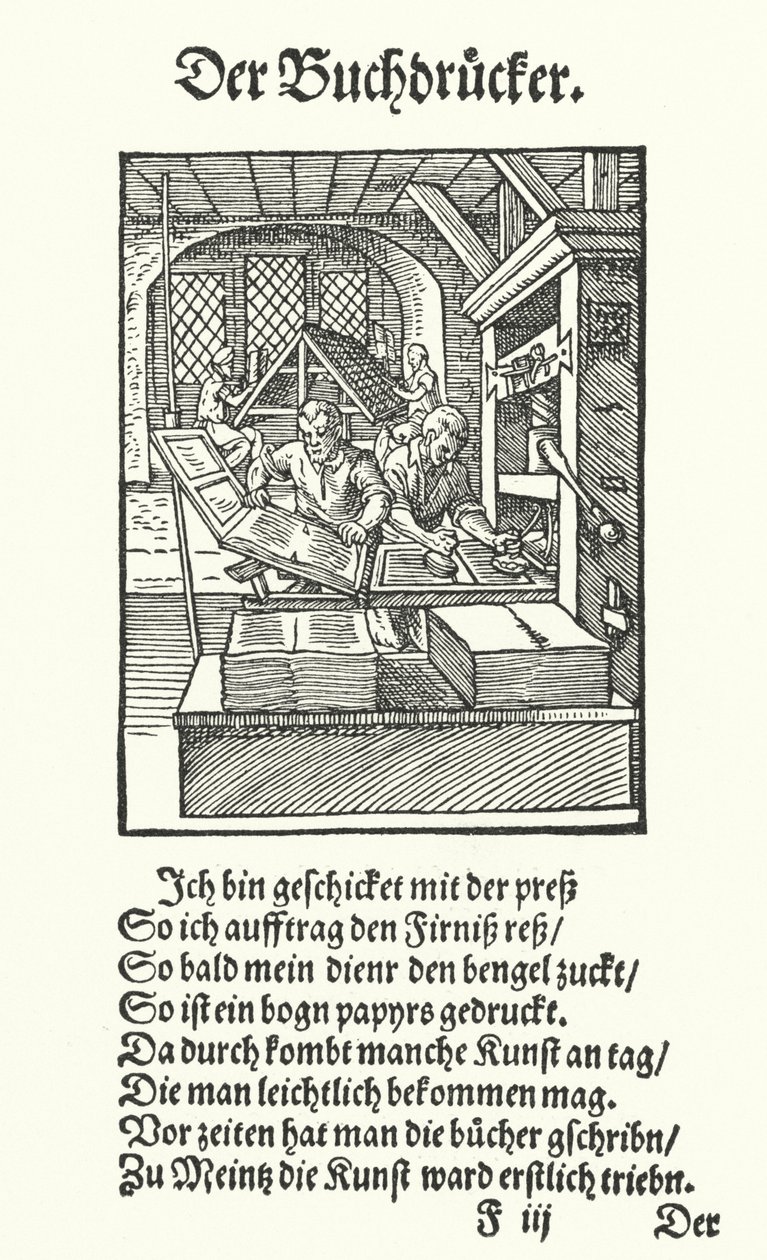 Der Buchdrůcker.
Ich bin geſchicket mit der preß
So ich aufftrag den Firniß reß/
So bald mein dienr den bengel zuckt/
So iſt ein bogn papyrs gedruckt.
Da durch kombt manche Kunſt an tag/
Die man leichtlich bekommen mag.
Vor zeiten hat man die bůcher gſchribn/
Zu Meintz die Kunſt ward erſtlich triebn.
F iij Der